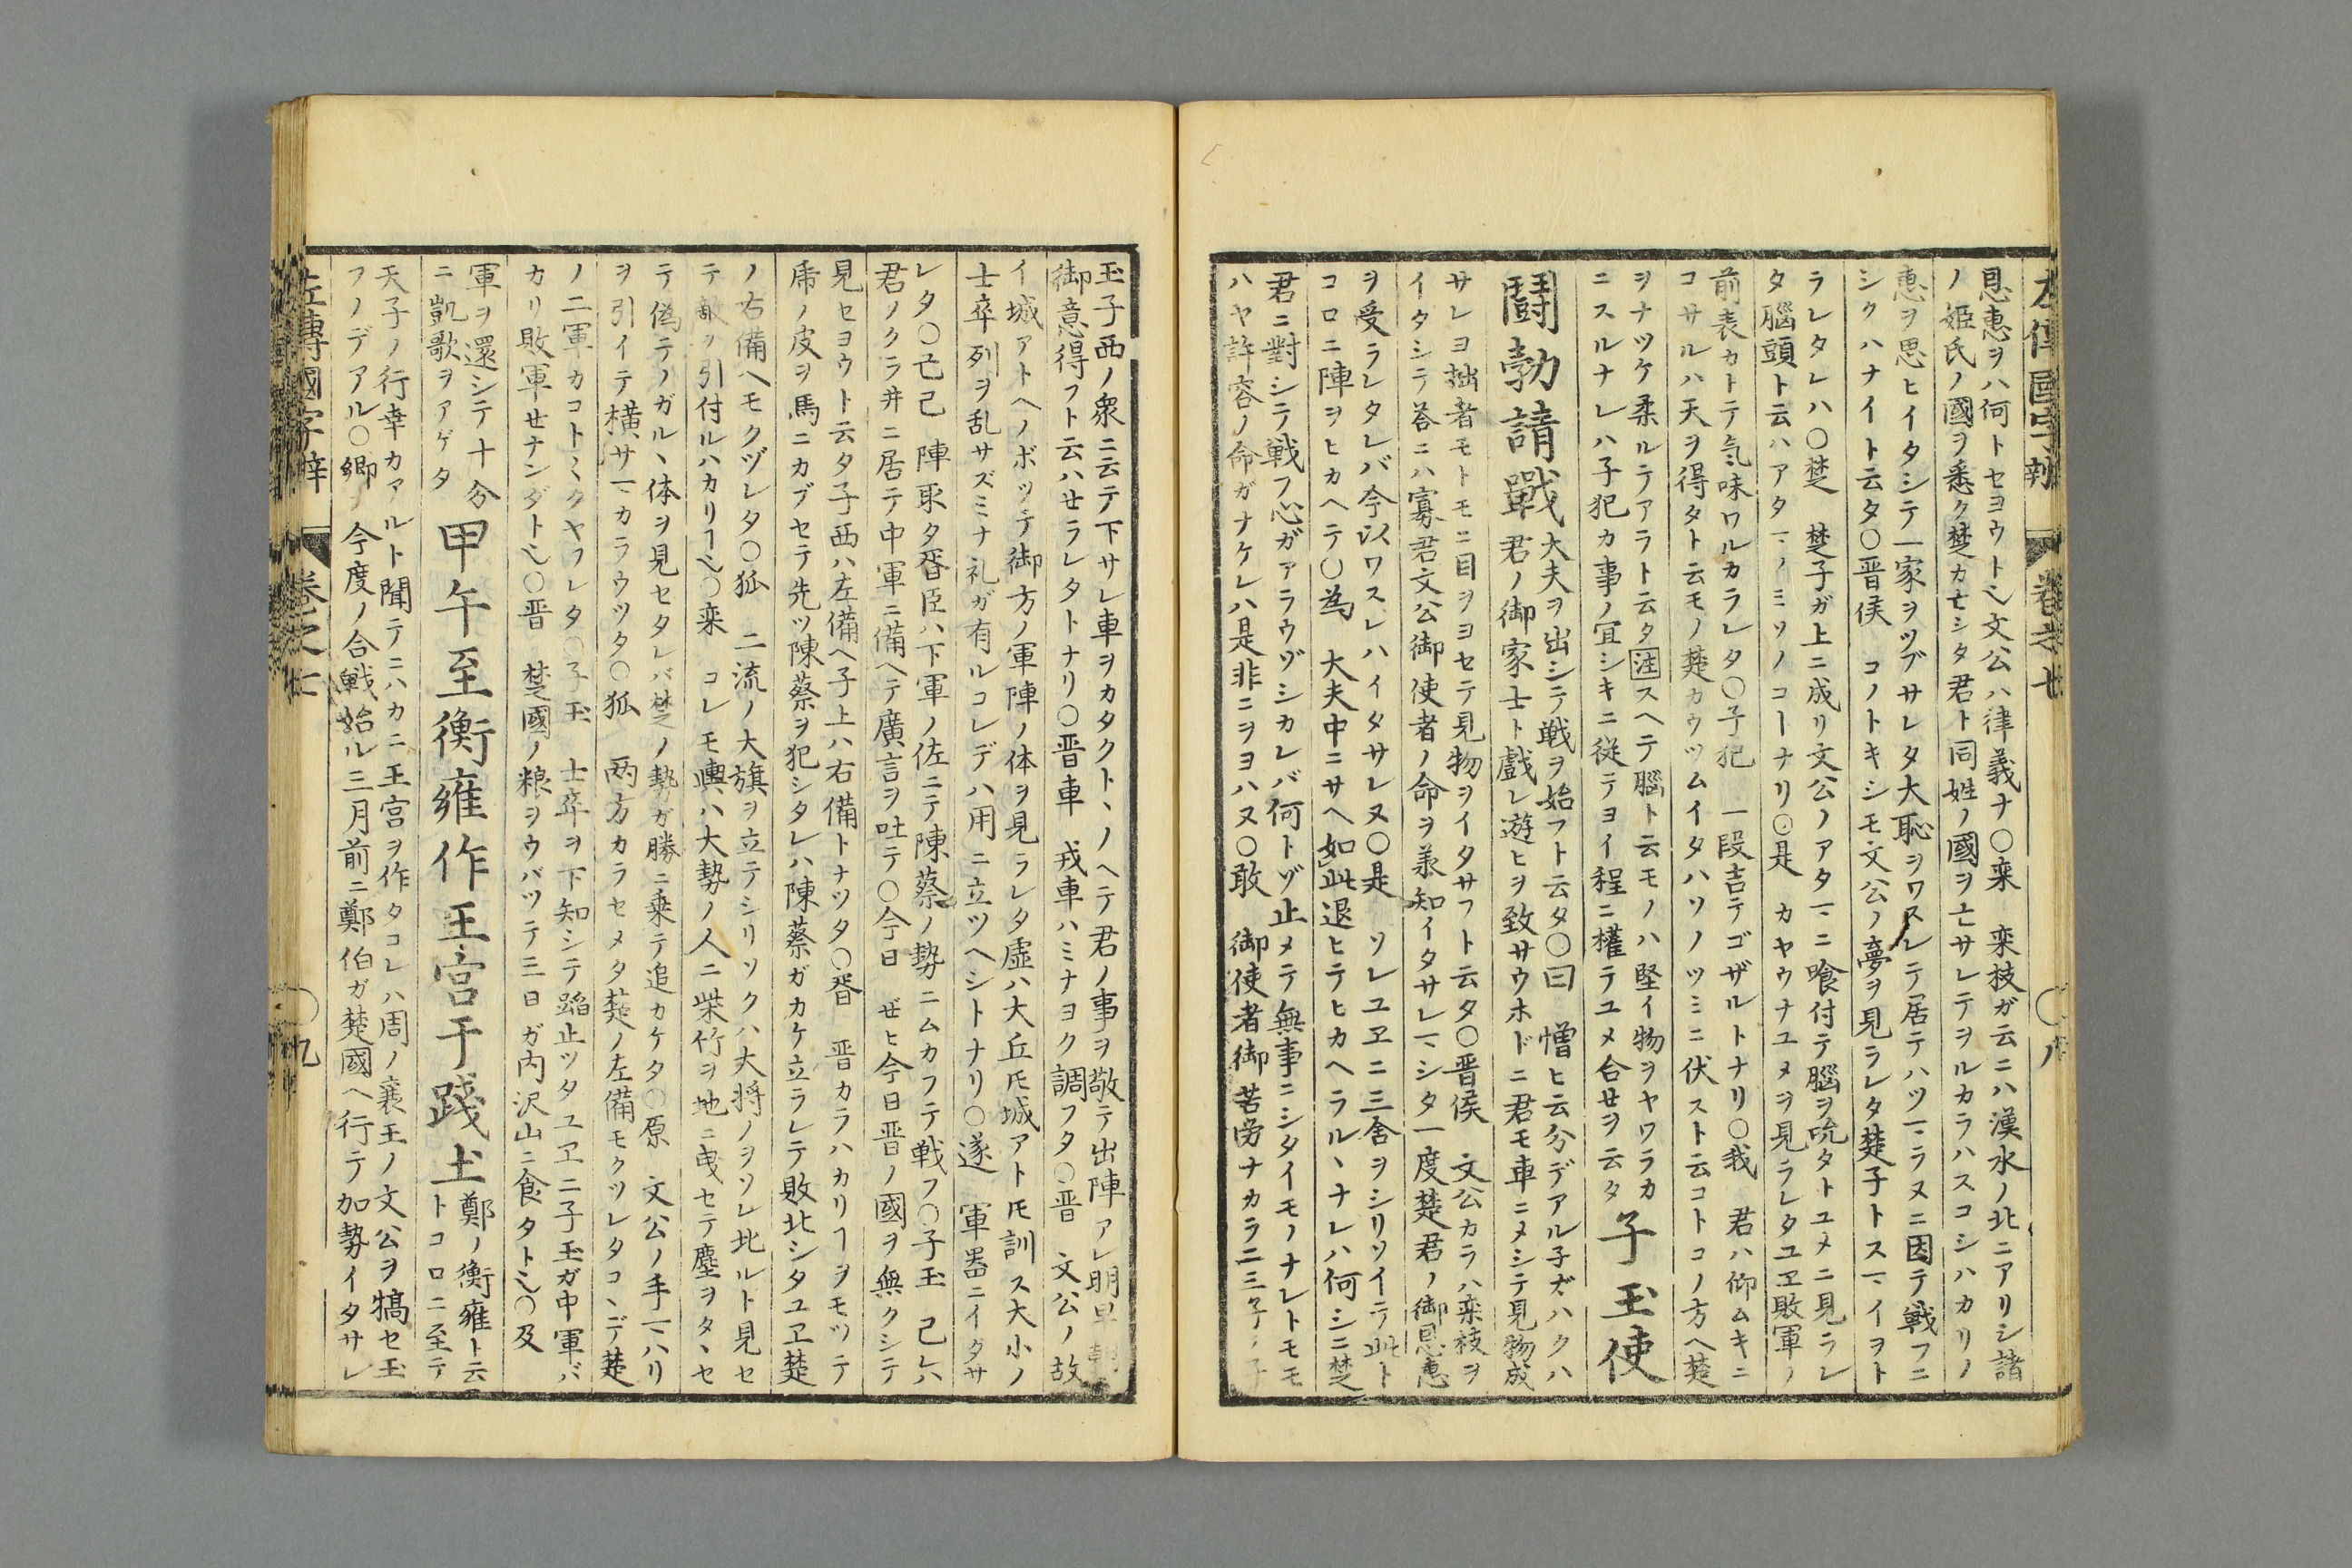 左傳國字辨 卷之七 〇八
恩惠ヲハ何トセヨウト也文公ハ律義ナ〇欒 欒枝ガ云ニハ漢水ノ北ニアリシ諸
ノ姫氏ノ國ヲ悉ク楚カ亡シタ君ト同姓ノ國ヲ亡サレテヲルカラハスコシハカリノ
惠ヲ思ヒイタシテ一家ヲツブサレタ大恥ヲワスレテ居テハツマラヌニ因テ戦フニ
シクハナイト云タ〇晋侯 コノトキシモ文公ノ夢ヲ見ラレタ楚子トスマイヲト
ラレタレハ〇楚 楚子ガ上ニ成リ文公ノアタマニ喰付テ腦ヲ吮タトユメニ見ラレ
タ腦頭ト云ハアタマノミソノコーナリ〇是 カヤウナユメヲ見ラレタユヱ敗軍ノ
前表カトテ気味ワルカラレタ〇子犯 一段吉テゴザルトナリ〇我 君ハ仰ムキニ
コサルハ天ヲ得タト云モノ楚カウツムイタハソノツミニ伏スト云コトコノ方ヘ楚
ヲナツケ柔ルテアラト云タ注スヘテ腦ト云モノハ堅イ物ヲヤワラカ
ニスルナレハ子犯カ事ノ宜シキニ従テヨイ程ニ權テユメ合セヲ云タ
子玉使
鬪勃請戰
大夫ヲ出シテ戦ヲ始フト云タ〇曰 憎ヒ云分デアル子ズハクハ
君ノ御家士ト戯レ遊ヒヲ致サウホドニ君モ車ニメシテ見物成
サレヨ拙者モトモニ目ヲヨセテ見物ヲイタサフト云タ〇晋侯 文公カラハ欒枝ヲ
イタシテ荅ニハ寡君文公御使者ノ命ヲ羕知イタサレマシタ一度楚君ノ御恩惠
ヲ受ラレタレバ今以ワスレハイタサレヌ〇是 ソレユヱニ三舎ヲシリソイテ此ト
コロニ陣ヲヒカヘテ〇為 大夫中ニサヘ如此退ヒテヒカヘラルヽナレハ何シニ楚
君ニ對シテ戦フ心ガアラウゾシカレバ何トゾ止メテ無事ニシタイモノナレトモモ
ハヤ許容ノ命ガナケレハ是非ニヲヨハヌ〇敢 御使者御苦労ナカラ二三子ノ子
玉子西ノ衆ニ云テ下サレ車ヲカタクトヽノヘテ君ノ事ヲ敬テ出陣アレ明早朝
御意得フト云ハせラレタトナリ〇晋車 戎車ハミナヨク調フタ〇晋 文公ノ故
イ城アトヘノボツテ御方ノ軍陣ノ体ヲ見ラレタ虚ハ大丘𪜈城アト𪜈訓ス大小ノ
士卒列ヲ乱サズミナ礼ガ有ルコレデハ用ニ立ツヘシトナリ〇遂 軍噐ニイタサ
レタ〇己巳 陣取タ胥臣ハ下軍ノ佐ニテ陳蔡ノ勢ニムカフテ戦フ〇子玉 己レハ
君ノクラ井ニ居テ中軍ニ備ヘテ廣言ヲ吐テ〇今日 ぜヒ今日晋ノ國ヲ無クシテ
見セヨウト云タ子西ハ左備ヘ子上ハ右備トナツタ〇胥 晋カラハカリーヲモツテ
虎ノ皮ヲ馬ニカブセテ先ツ陳蔡ヲ犯シタレハ陳蔡ガカケ立ラレテ敗北シタユヱ楚
ノ右備ヘモクヅレタ〇狐 二流ノ大旗ヲ立テシリソクハ大将ノヲソレ北ルト見セ
テ敵ヲ引付ルハカリー也〇欒 コレモ輿ハ大勢ノ人ニ柴竹ヲ地ニ曵セテ塵ヲタヽセ
テ偽テノガルヽ体ヲ見セタレバ楚ノ勢ガ勝ニ乗テ追カケタ〇原 文公ノ手マハリ
ヲ引イテ横サマカラウツタ〇狐 両方カラセメタ楚ノ左備モクツレタコヽデ楚
ノ二軍カコトヽクヤフレタ〇子玉 士卒ヲ下知シテ蹈止ツタユヱニ子玉ガ中軍バ
カリ敗軍せナンダト也〇晋 楚國ノ粮ヲウバツテ三日ガ内沢山ニ食タト也〇及
軍ヲ還シテ十分
ニ凱歌ヲアゲタ
甲午至衡雍作王宮于踐土
鄭ノ衡雍ト云
トコロニ至テ
天子ノ行幸カアルト聞テニハカニ王宮ヲ作タコレハ周ノ襄王ノ文公ヲ犒セ玉
フノデアル〇郷 今度ノ合戦始ル三月前ニ鄭伯ガ楚國ヘ行テ加勢イタサレ
左傳國字辨 卷之七 〇九